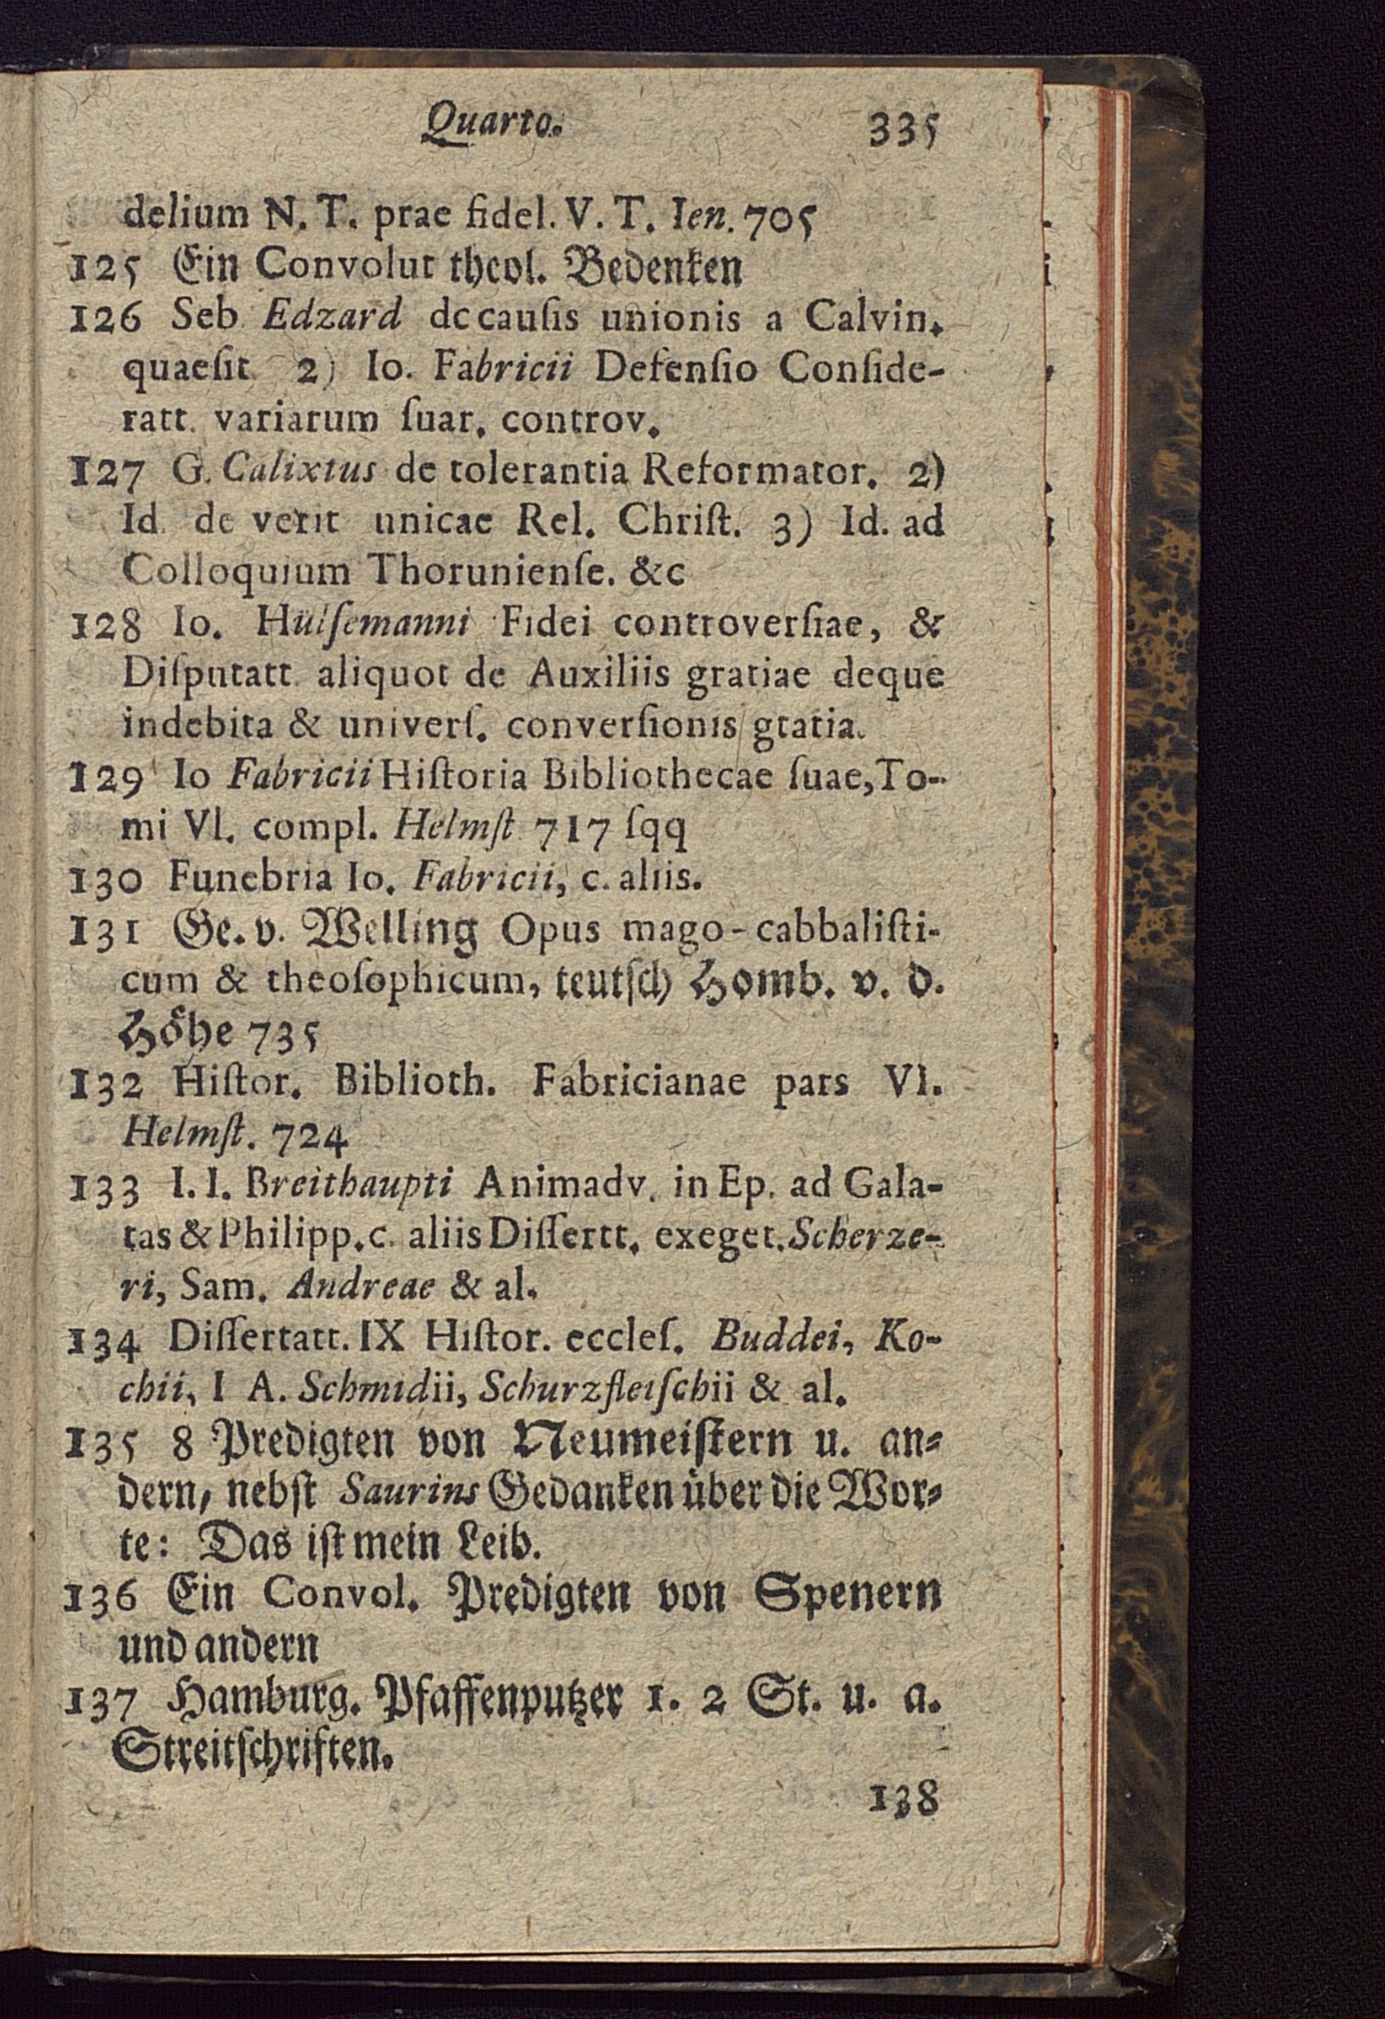 Quarto. 335
delium N. T. prae fidel. V. T. Ien. 705
125 Ein Convolut theol. Bedenken
126 Seb Edzard de cauſis unionis a Calvin.
quaeſit 2) Io. Fabricii Defenſio Conſide-
ratt. variarum ſuar. controv.
127 G. Calixtus de tolerantia Reformator. 2)
Id de verit unicae Rel. Chriſt. 3) Id. ad
Colloquium Thorunienſe. &c
128 Io. Hülſemanni Fidei controverſiae, &
Diſputatt. aliquot de Auxiliis gratiae deque
indebita & univerſ. converſionis gtatia.
129 Io Fabricii Hiſtoria Bibliothecae ſuae, To-
mi VI. compl. Helmſt 717 ſqq
130 Funebria Io. Fabricii, c. aliis.
131 Ge. v. Welling Opus mago-cabbaliſti-
cum & theoſophicum, teutſch Homb. v. d.
Hoͤhe 735
132 Hiſtor. Biblioth. Fabricianae pars VI.
Helmſt. 724
133 I. I. Breithaupti Animadv. in Ep. ad Gala-
tas & Philipp. c. aliis Diſſertt. exeget. Scherze-
ri, Sam. Andreae & al.
134 Diſſertatt. IX Hiſtor. eccleſ. Buddei, Ko-
chii, I A. Schmidii, Schurzfleiſchii & al.
135 8 Predigten von Neumeiſtern u. an-
dern, nebſt Saurins Gedanken uͤber die Wor-
te: Das iſt mein Leib.
136 Ein Convol. Predigten von Spenern
und andern
137 Hamburg. Pfaffenputzer 1. 2 St. u. a.
Streitſchriften.
138